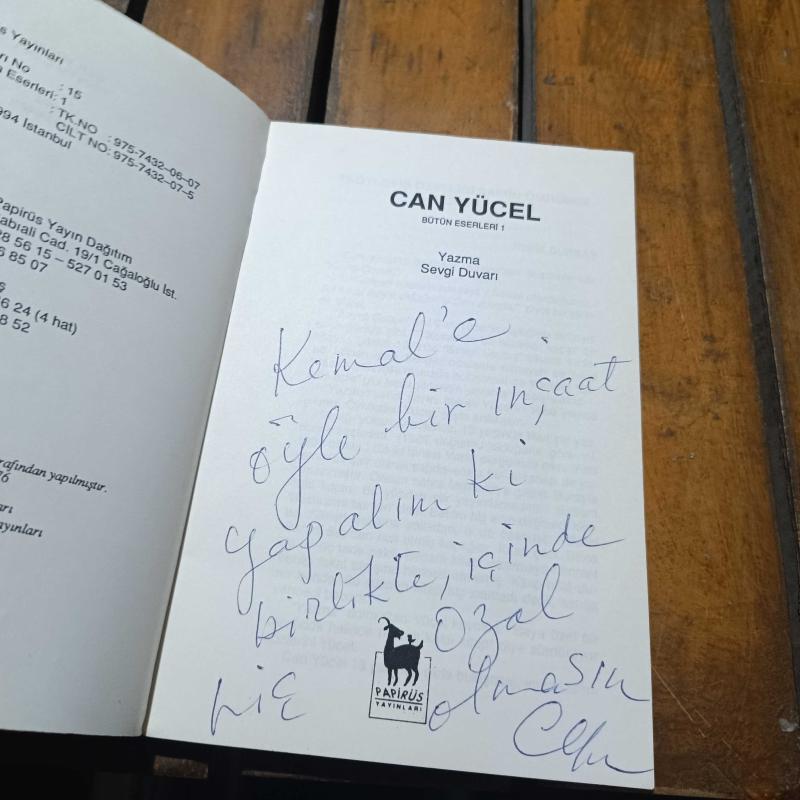 s Yayınları
rı No : 15
Eserleri: 1
TK.NO : 975-7432-06-07
CİLT NO: 975-7432-07-5
994 İstanbul
Papirüs Yayın Dağıtım
abıali Cad. 19/1 Cağaloğlu İst.
28 56 15 – 527 01 53
6 85 07
ş
6 24 (4 hat)
8 52
rafından yapılmıştır.
76
arı
ayınları
CAN YÜCEL
BÜTÜN ESERLERİ 1
Yazma
Sevgi Duvarı
Kemal'e
öyle bir inşaat
yapalım ki
birlikte, içinde
Özal
hiç olmasın
Can
PAPİRÜS
YAYINLARI